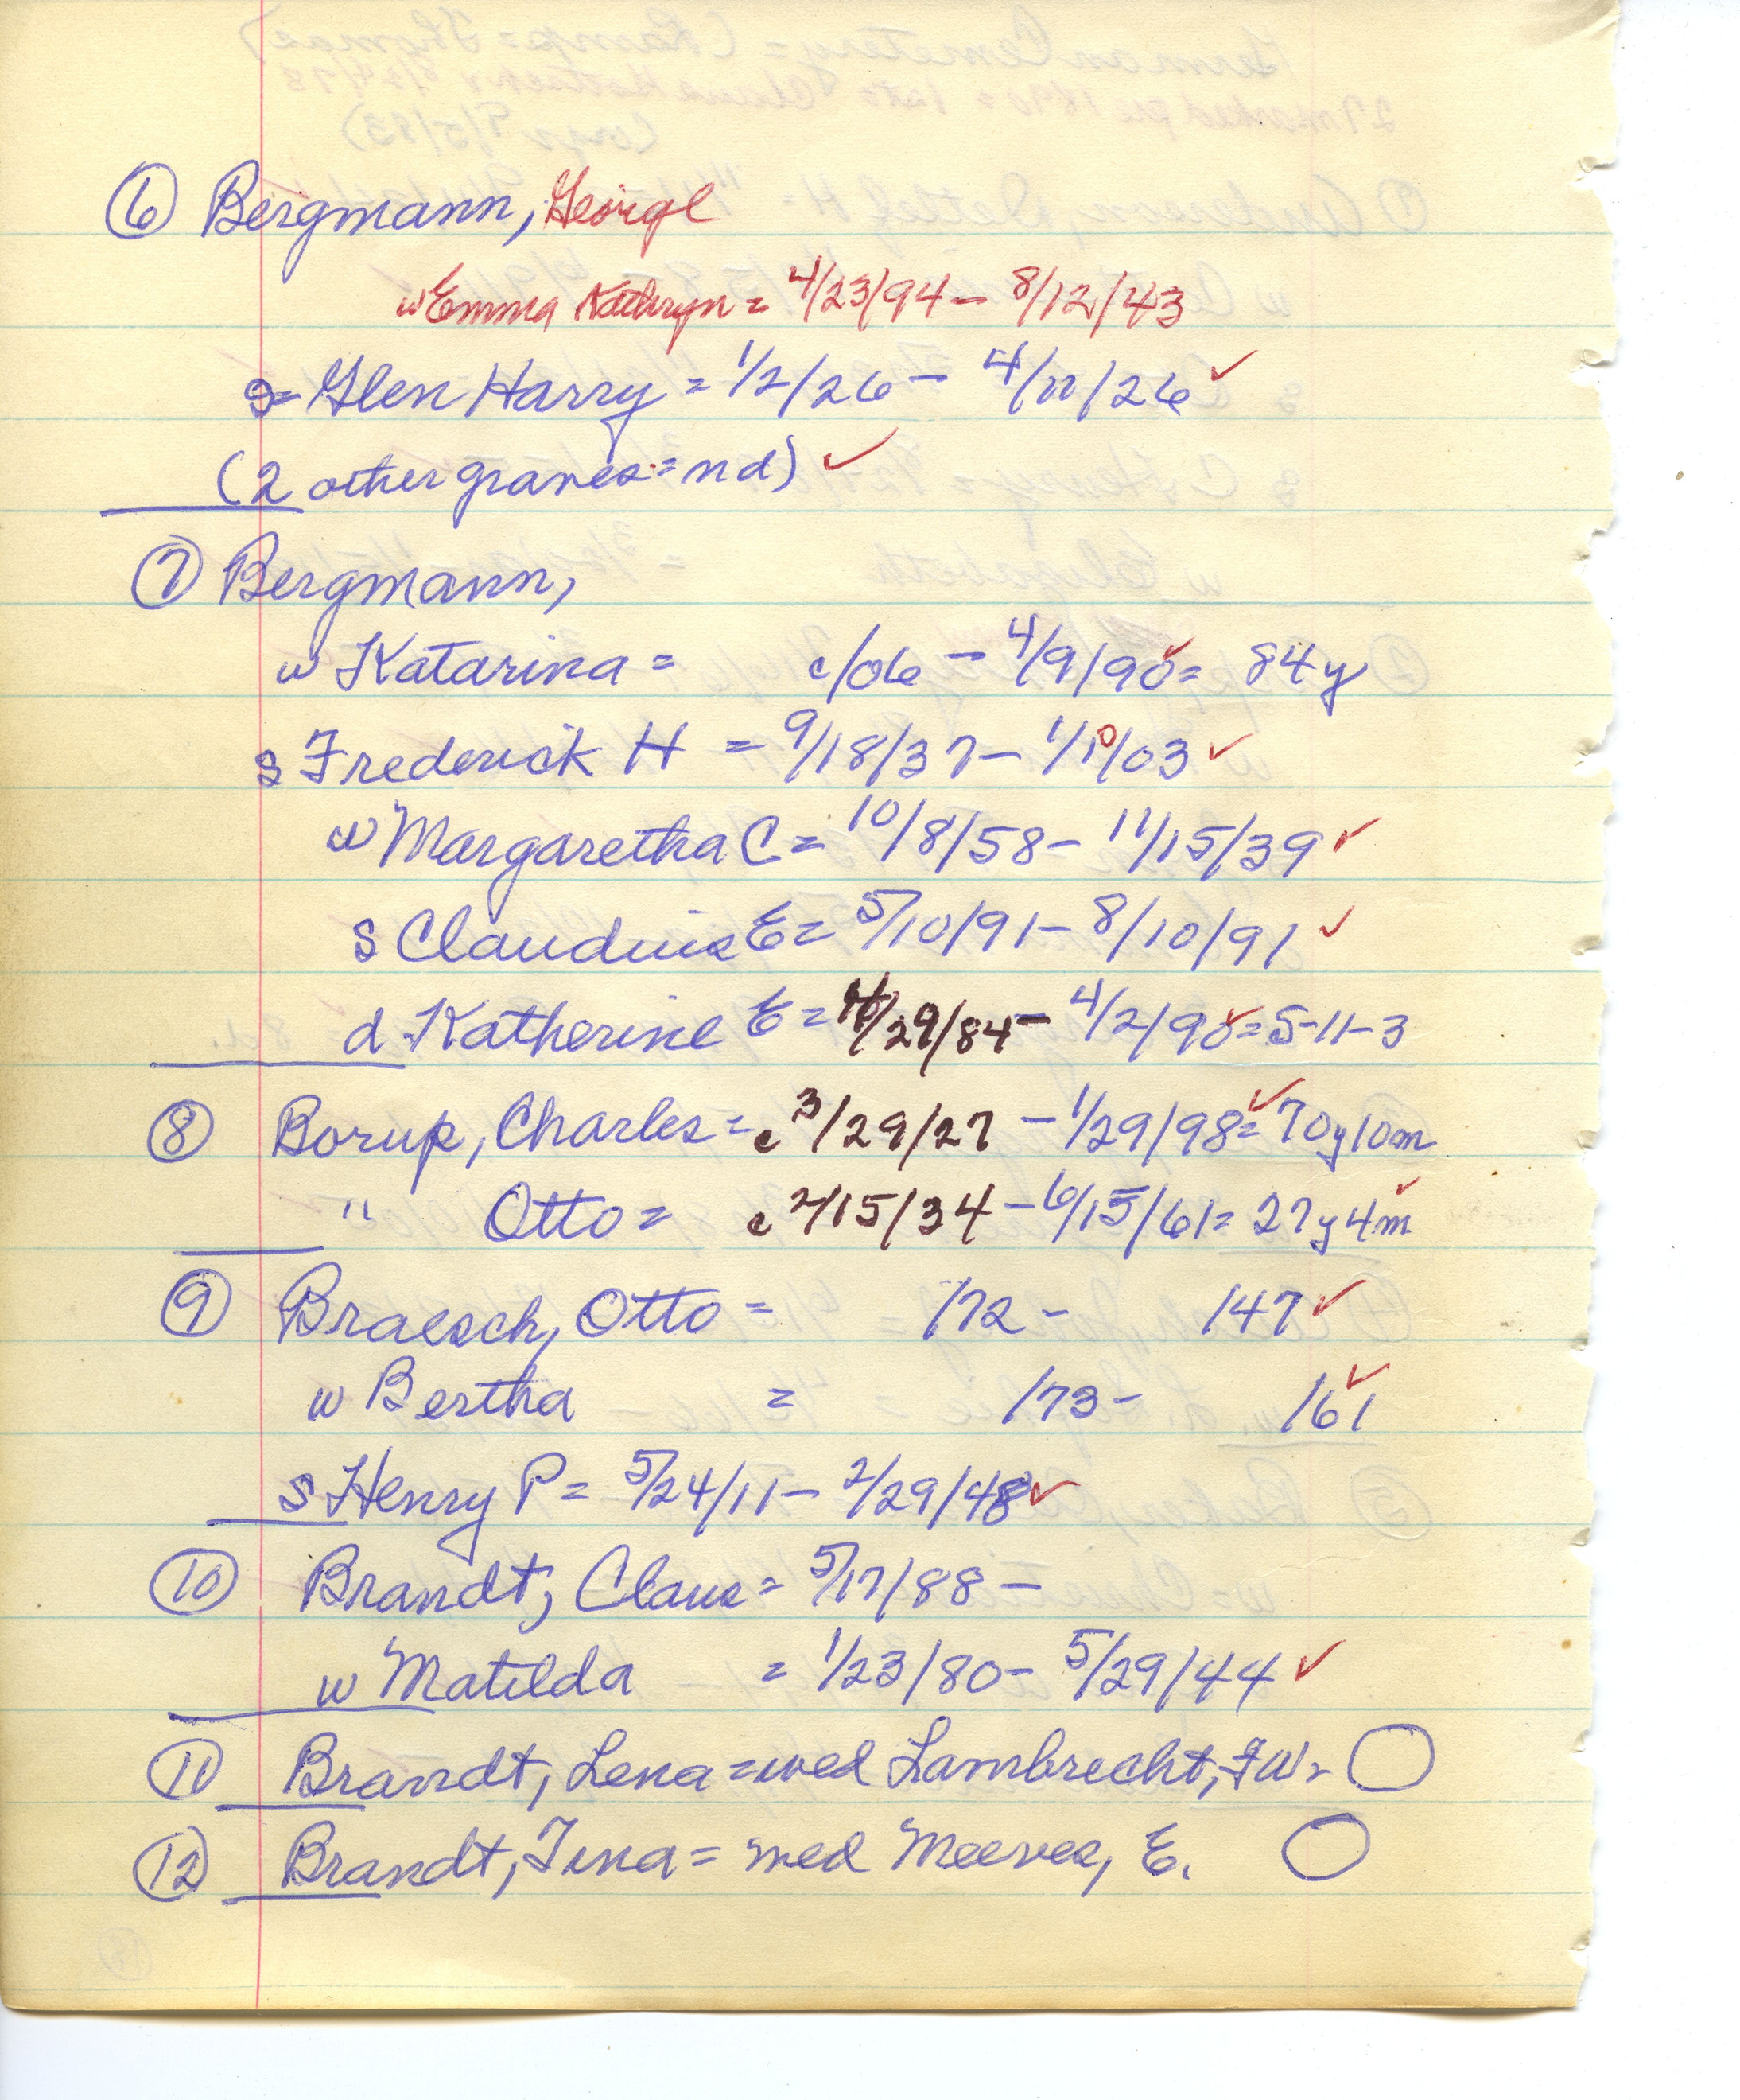 ⑥ Bergmann, George
w Emma Kathryn = 4/23/94 - 8/12/43
s = Glen Harry = 1/2/26 - 4/11/26 ✓
(2 other graves = nd) ✓
⑦ Bergmann,
w Katarina = c/06 - 4/9/90 = 84y
s Frederick H = 9/18/37 - 1/10/03 ✓
w Margaretha C = 10/8/58 - 11/15/39 ✓
s Claudius E = 5/10/91 - 8/10/91 ✓
d Katherine E = /29/84 - 4/2/90 = 5-11-3
⑧ Borup, Charles = c 3/29/27 - 1/29/98 = 70y10m
" Otto = c 2/15/34 - 6/15/61 = 27y4m
⑨ Braesch, Otto = /72 - /47 ✓
w Bertha = /73 - /61 ✓
s Henry P = 5/24/11 - 2/29/48 ✓
⑩ Brandt, Claus = 5/17/88 -
w Matilda = 1/23/80 - 5/29/44 ✓
⑪ Brandt, Lena = wed Lambrecht, FW =
⑫ Brandt, Tina = wed Meeves, E.